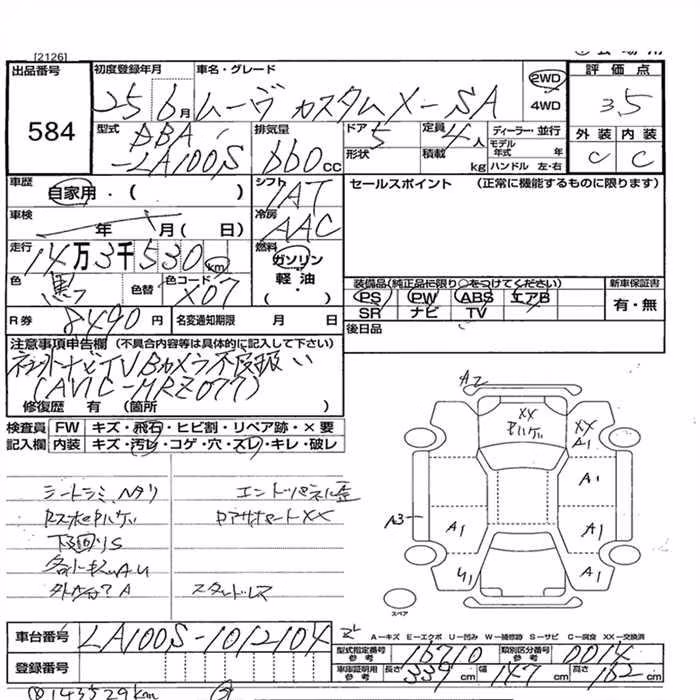 [2126]
出品番号
584
初度登録年月
25 6月
車名・グレード
ムーヴ カスタム X-SA
2WD
4WD
評価点
3.5
型式
DBA
-LA100S
排気量
660cc
ドア 5
形状
定員 4人
積載 kg
ディーラー・並行
モデル年式 年
ハンドル 左・右
外装 内装
C C
車歴
自家用・( )
シフト
IAT
セールスポイント (正常に機能するものに限ります)
車検
年 月( 日)
冷房
AAC
走行
14万3千530km
燃料
ガソリン
軽油
( ・ )
色
黒
色替
色コード
X07
装備品(純正品に限り○をつけてください)
PS PW ABS エアB
SR ナビ TV
新車保証書
有・無
R券
8490円
名変通知期限 月 日
後日品
注意事項申告欄(不具合内容等は具体的に記入して下さい)
社外ナビTVBカメラ不良扱い
(AVIC-MRZ077)
修復歴 有 (箇所 )
検査員 FW キズ・飛石・ヒビ割・リペア跡・×要
記入欄 内装 キズ・汚レ・コゲ・穴・スレ・キレ・破レ
A2
XX
XX
A1
A1
A3
A1
A1
U1
A1
スペア
シートシミ、ヘタリ
エンドパネル歪
下回りS
車台番号
LA100S-1012104
A-キズ E-エクボ U-凹み W-補修跡 S-サビ C-腐食 XX-交換済
型式指定番号 参考
16710
類別区分番号 参考
0014
登録番号
車庫証明用 参考
長さ 339cm
幅 147cm
高さ 162cm